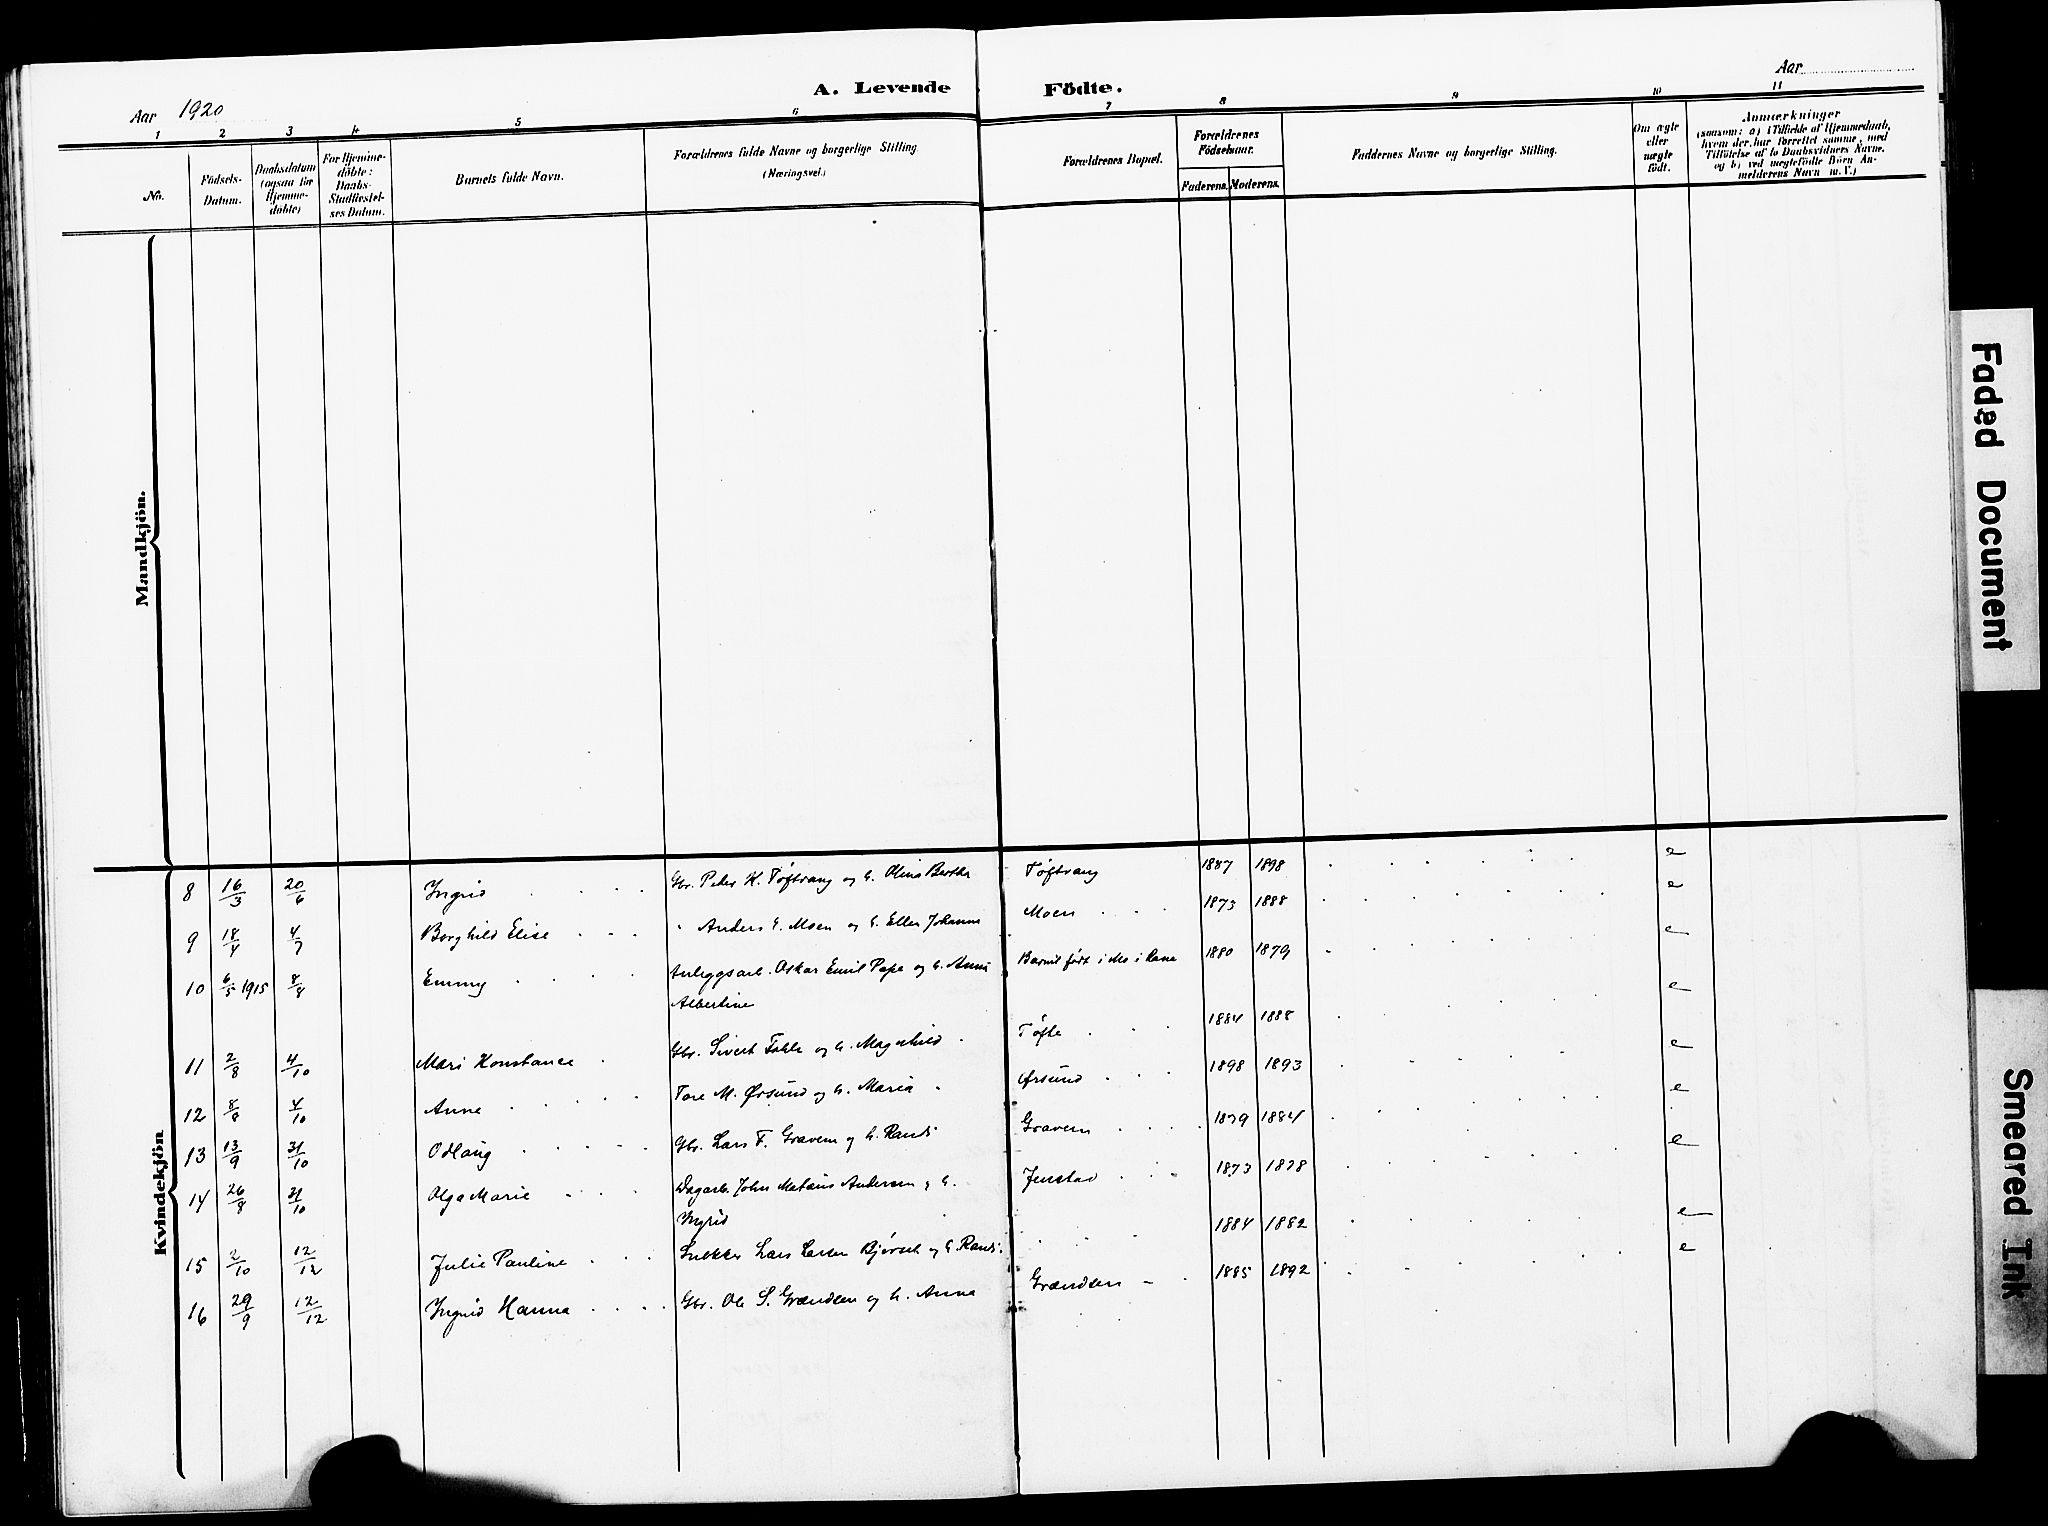 A. Levende Födte.
Aar 1920
Aar
1 2 3 4 5 6 7 8 9 10 11
No.
Födsels-Datum.
Daabsdatum (ogsaa for Hjemme-döbte)
For Hjemme-döbte: Daabs-Stadfæstel-ses Datum.
Barnets fulde Navn.
Forældrenes fulde Navne og borgerlige Stilling. (Næringsvei.)
Forældrenes Bopæl.
Forældrenes Födselsaar.
Faderens. Moderens.
Faddernes Navne og borgerlige Stilling.
Om ægte eller uægte födt.
Anmærkninger
(saasom: a) i Tilfælde af Hjemmedaab,
hvem der har forrettet samme, med
Tilföielse af to Daabsvidners Navne,
og b) ved uægtefödte Börn An-
melderens Navn m. V.)
Mandkjön.
Kvindekjön
8 16/3 20/6 Ingrid Gbr. Peder K. Töftvang og h. Olina Berthe Töftvang 1887 1898 e
9 18/4 4/7 Borghild Elise " Anders E. Moen og h. Ellen Johanna Moen 1873 1888 e
10 6/5 1915 8/8 Emmy Anleggsarb. Oskar Emil Pape og h. Anna Barnet født i Mo i Rana 1880 1879 e
Albertine
11 2/8 4/10 Mari Konstance Gbr. Sivert Tøfte og h. Magnhild Tøfte 1884 1888 e
12 8/8 4/10 Anne Tore M. Ørsund og h. Maria Ørsund 1898 1893 e
13 13/9 31/10 Odlaug Gbr. Lars F. Gravem og h. Randi Gravem 1879 1884 e
14 26/8 31/10 Olga Marie Dagarb. John Mataus Andersen og h. Jenstad 1873 1878 e
Ingrid
15 2/10 12/12 Julie Pauline Snekker Lars Larsen Bjørset og h. Randi 1884 1882 e
16 29/9 12/12 Ingrid Hanna Gbr. Ole S. Grændsen og h. Anna Grændsen 1885 1892 e
Faded Document
Smeared Ink